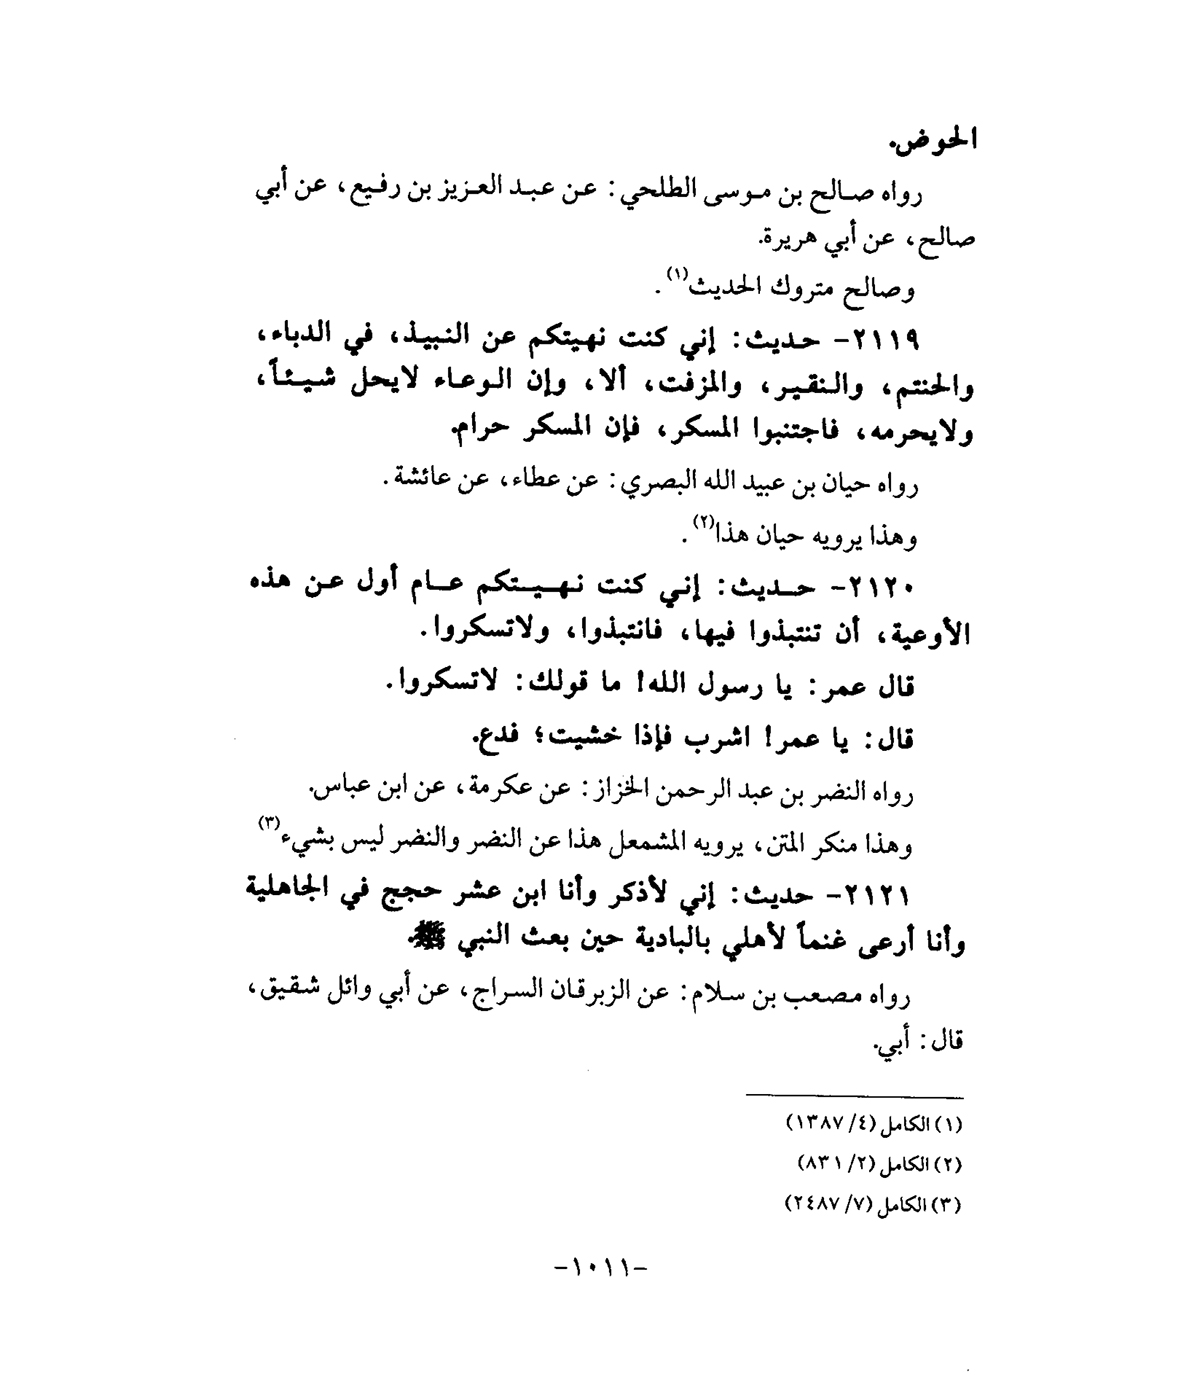 الحوض.
رواه صالح بن موسى الطلحي: عن عبد العزيز بن رفيع، عن أبي
صالح، عن أبي هريرة.
وصالح متروك الحديث(١).
٢١١٩- حديث: إني كنت نهيتكم عن النبيذ، في الدباء،
والحنتم، والنقير، والمزفت، ألا، وإن الوعاء لايحل شيئاً،
ولايحرمه، فاجتنبوا المسكر، فإن المسكر حرام.
رواه حيان بن عبيد الله البصري: عن عطاء، عن عائشة.
وهذا يرويه حيان هذا(٢).
٢١٢٠- حديث: إني كنت نهيتكم عام أول عن هذه
الأوعية، أن تنتبذوا فيها، فانتبذوا، ولاتسكروا.
قال عمر: يا رسول الله! ما قولك: لاتسكروا.
قال: يا عمر! اشرب فإذا خشيت؛ فدع.
رواه النضر بن عبد الرحمن الخزاز: عن عكرمة، عن ابن عباس.
وهذا منكر المتن، يرويه المشمعل هذا عن النضر والنضر ليس بشيء(٣)
٢١٢١- حديث: إني لأذكر وأنا ابن عشر حجج في الجاهلية
وأنا أرعى غنماً لأهلي بالبادية حين بعث النبي ﷺ.
رواه مصعب بن سلام: عن الزبرقان السراج، عن أبي وائل شقيق،
قال: أبي.
(١) الكامل (٤/ ١٣٨٧)
(٢) الكامل (٢/ ٨٣١)
(٣) الكامل (٧/ ٢٤٨٧)
-١٠١١-